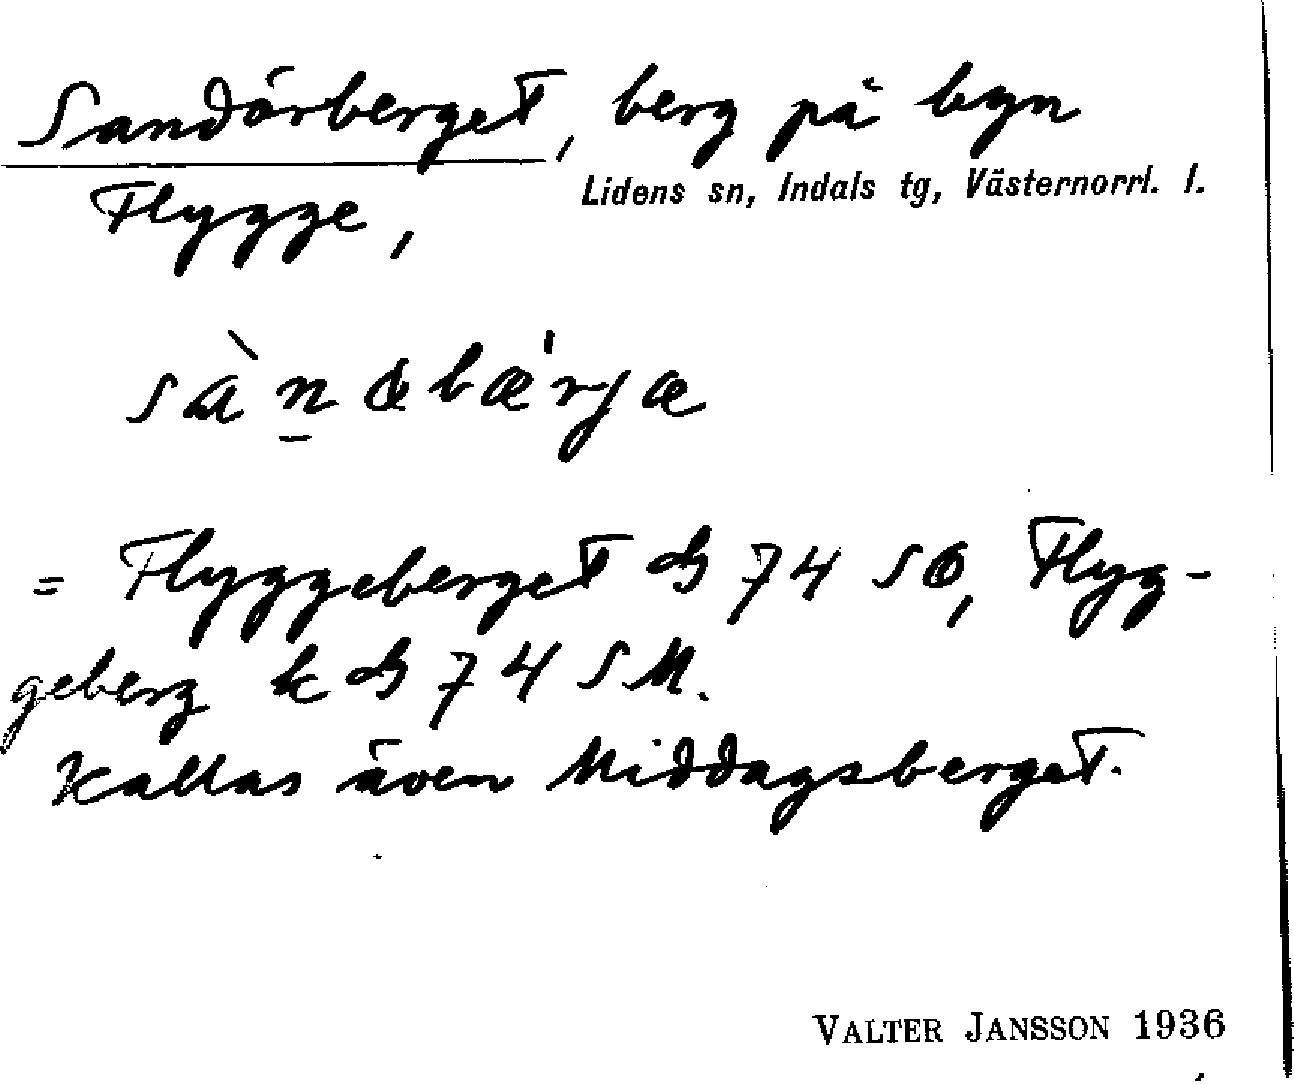 Sandörberget, berg på byn
Lidens sn, Indals tg, Västernorrl. l.
Flygge,
= Flyggeberget gb 74 SO, Flyg-
geberg k gb 74 SM.
Kallas även Middagsberget.
VALTER JANSSON 1936